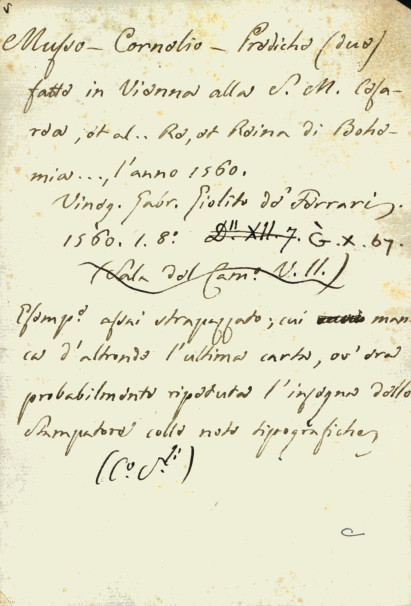 Musso - Cornelio - Prediche (due)
fatte in Vienna alla S. M. Cesa-
rea, et al.. Re, et Reina di Bohe-
mia..., l'anno 1560.
Vineg. Gabr. Giolito de' Ferrari,
1560. 1. 8.º D.II XII. 7. G̀. X. 67.
(Sala del Cam.º V. II.)
Esemp.º assai strapazzato; cui man-
ca d'altronde l'ultima carta, ov'era
probabilmente ripetuta l'insegna dello
Stampatore colle note tipografiche,
(C.º S.ti)